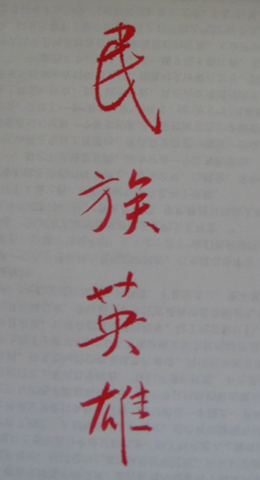 民族英雄